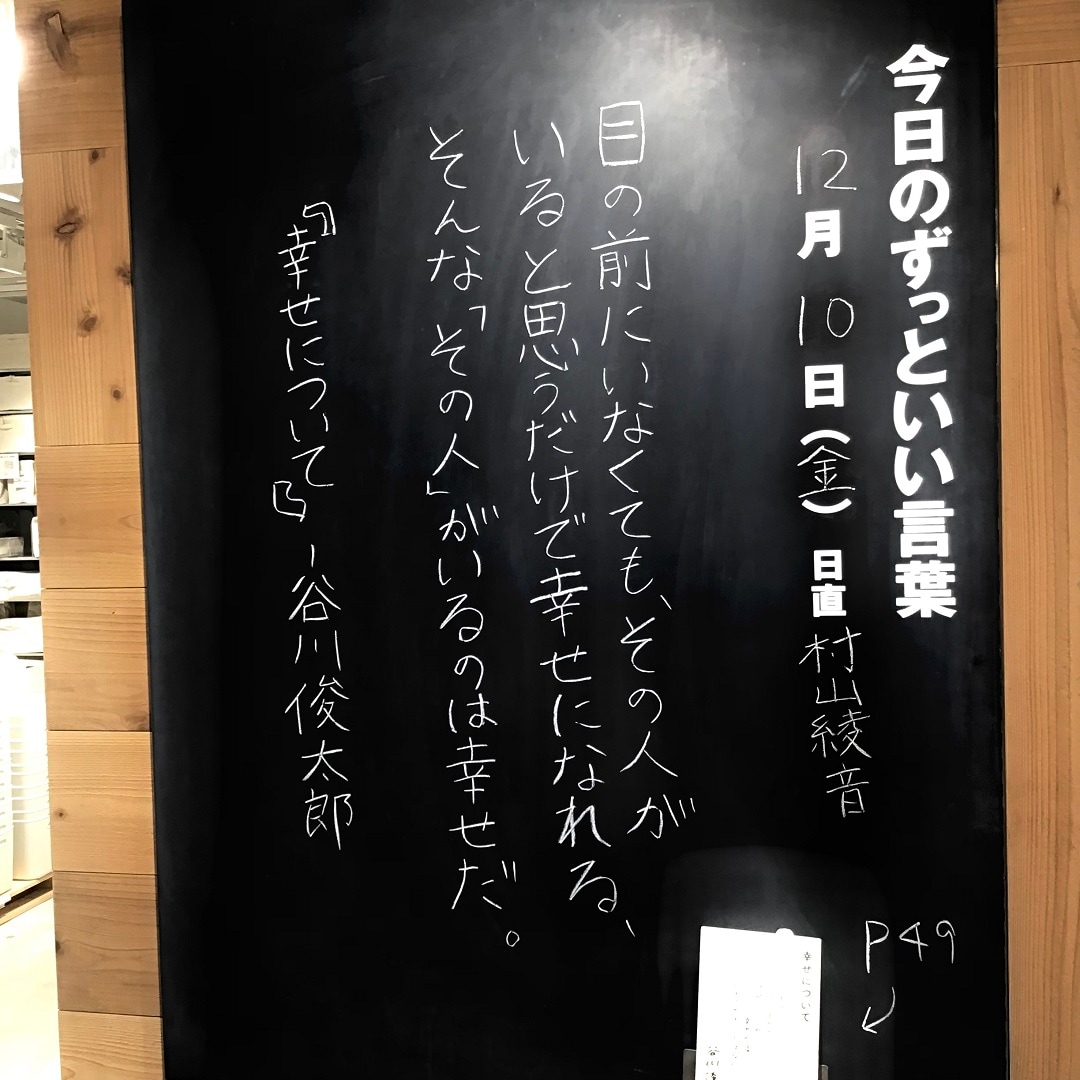 今日のずっといい言葉
12月10日(金) 日直 村山綾音
目の前にいなくても、その人が
いると思うだけで幸せになれる、
そんな「その人」がいるのは幸せだ。
『幸せについて』 ー谷川俊太郎
P49
幸せについて